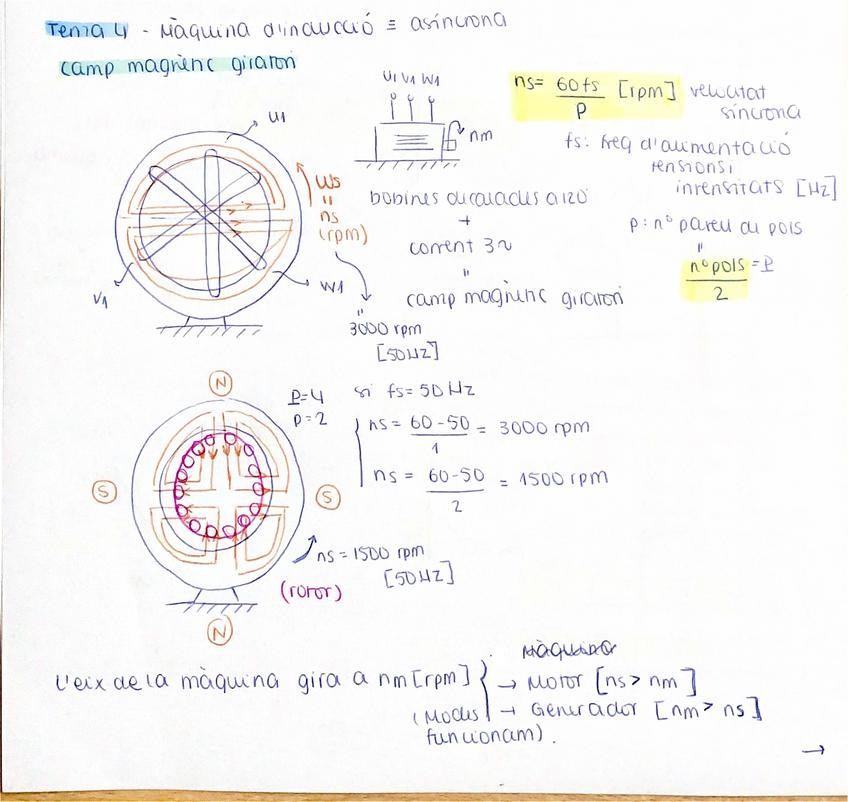 Tema 4 - Màquina d'inducció ≡ asíncrona
camp magnètic giratori
U1 V1 W1
nm
ns = 60 fs / P [rpm] velocitat síncrona
fs: freq d'alimentació
tensions i
intensitats [Hz]
p: nº parell de pols
"
nº pols / 2 = P
U1
V1
W1
Ws
"
ns
(rpm)
"
3000 rpm
[50Hz]
bobines decalades a 120
+
corrent 3~
"
camp magnètic giratori
P=4
p=2
si fs = 50 Hz
ns = 60-50 / 1 = 3000 rpm
ns = 60-50 / 2 = 1500 rpm
N
S
S
N
ns = 1500 rpm
[50Hz]
(rotor)
L'eix de la màquina gira a nm [rpm]
(Modes
funcionam).
Màquina
→ Motor [ns > nm]
→ Generador [nm > ns]
→